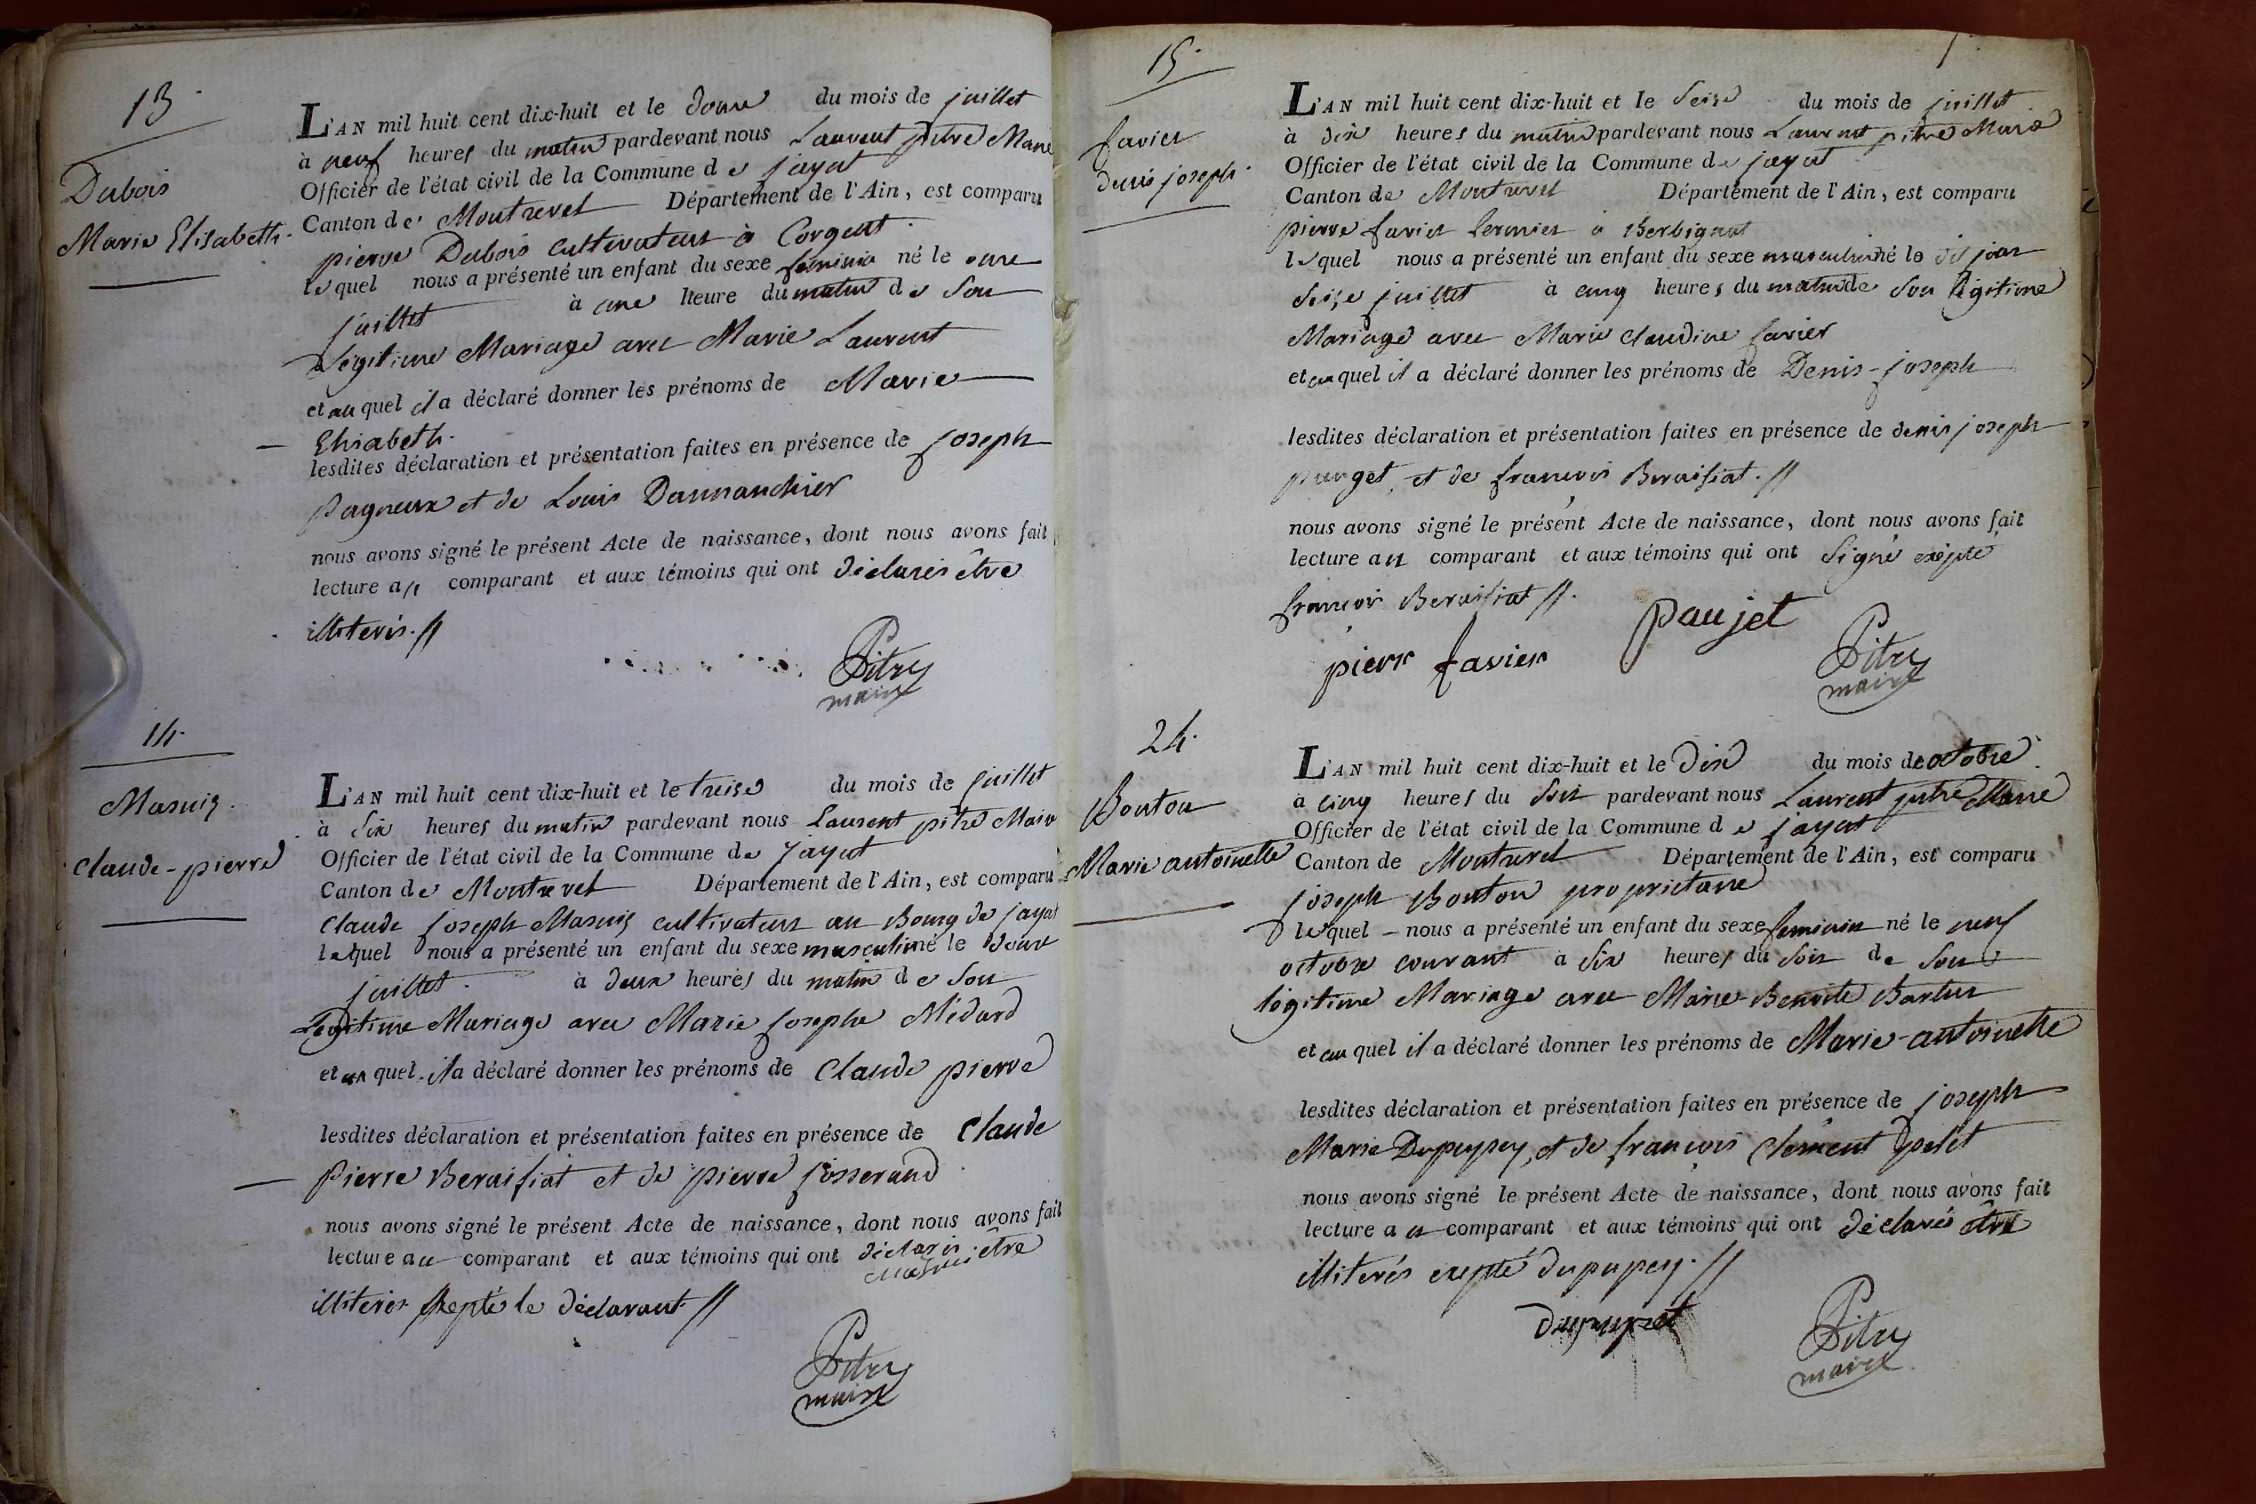 13.
Dubois
Marie Elisabeth.
L'AN mil huit cent dix-huit et le douze du mois de juillet
à neuf heures du matin pardevant nous Laurent pitre Maire
Officier de l'état civil de la Commune de jayat
Canton de Montrevel Département de l'Ain, est comparu
pierre Dubois cultivateur à Corgent
lequel nous a présenté un enfant du sexe feminin né le onze
juillet à une heure du matin de Son
légitime Mariage avec Marie Laurent
et au quel il a déclaré donner les prénoms de Marie
Elisabeth.
lesdites déclaration et présentation faites en présence de joseph
pagneux et de Louis Dannanchier
nous avons signé le présent Acte de naissance, dont nous avons fait
lecture au comparant et aux témoins qui ont déclarés être
illiterés. //
Pitre
maire
14.
Masuis.
Claude-pierre
L'AN mil huit cent dix-huit et le treize du mois de juillet
à Six heures du matin pardevant nous Laurent pitre Maire
Officier de l'état civil de la Commune de jayat
Canton de Montrevel Département de l'Ain, est comparu
Claude joseph Masuis cultivateur au Bourg de jayat
lequel nous a présenté un enfant du sexe masculin né le douze
juillet. à deux heures du matin de Son
Legitime Mariage avec Marie josephe Médard
et au quel il a déclaré donner les prénoms de Claude pierre
lesdites déclaration et présentation faites en présence de Claude
pierre Beraifiat et de pierre josserand
nous avons signé le présent Acte de naissance, dont nous avons fait
lecture au comparant et aux témoins qui ont déclarés être
Masuis
illiterés exepté le déclarant. //
Pitre
maire
15.
favier
denis joseph.
L'AN mil huit cent dix-huit et le Seize du mois de juillet
à dix heures du matin pardevant nous Laurent pitre Maire
Officier de l'état civil de la Commune de jayat
Canton de Montrevel Département de l'Ain, est comparu
pierre favier fermier à Berbignat
lequel nous a présenté un enfant du sexe masculin né le dit jour
Seize juillet à cinq heures du matin de Son légitime
Mariage avec Marie Claudine favier
et au quel il a déclaré donner les prénoms de Denis-joseph
lesdites déclaration et présentation faites en présence de denis joseph
pauget, et de françois Beraifiat. //
nous avons signé le présent Acte de naissance, dont nous avons fait
lecture au comparant et aux témoins qui ont Signé exepté
françois Beraifiat //.
pierr favier paujet Pitre
maire
24.
Bouton
Marie antoinette
L'AN mil huit cent dix-huit et le Dix du mois de octobre
à cinq heures du Soir pardevant nous Laurent pitre Maire
Officier de l'état civil de la Commune de jayat
Canton de Montrevel Département de l'Ain, est comparu
joseph Bouton propriétaire
lequel nous a présenté un enfant du sexe feminin né le neuf
octobre courant à Six heures du Soir de Son
légitime Mariage avec Marie-Benoite
et au quel il a déclaré donner les prénoms de Marie-antoinette
lesdites déclaration et présentation faites en présence de joseph
Marie Dupupey, et de françois Clement petit
nous avons signé le présent Acte de naissance, dont nous avons fait
lecture au comparant et aux témoins qui ont déclarés être
illiterés exepté dupupey. //
dupupet Pitre
maire